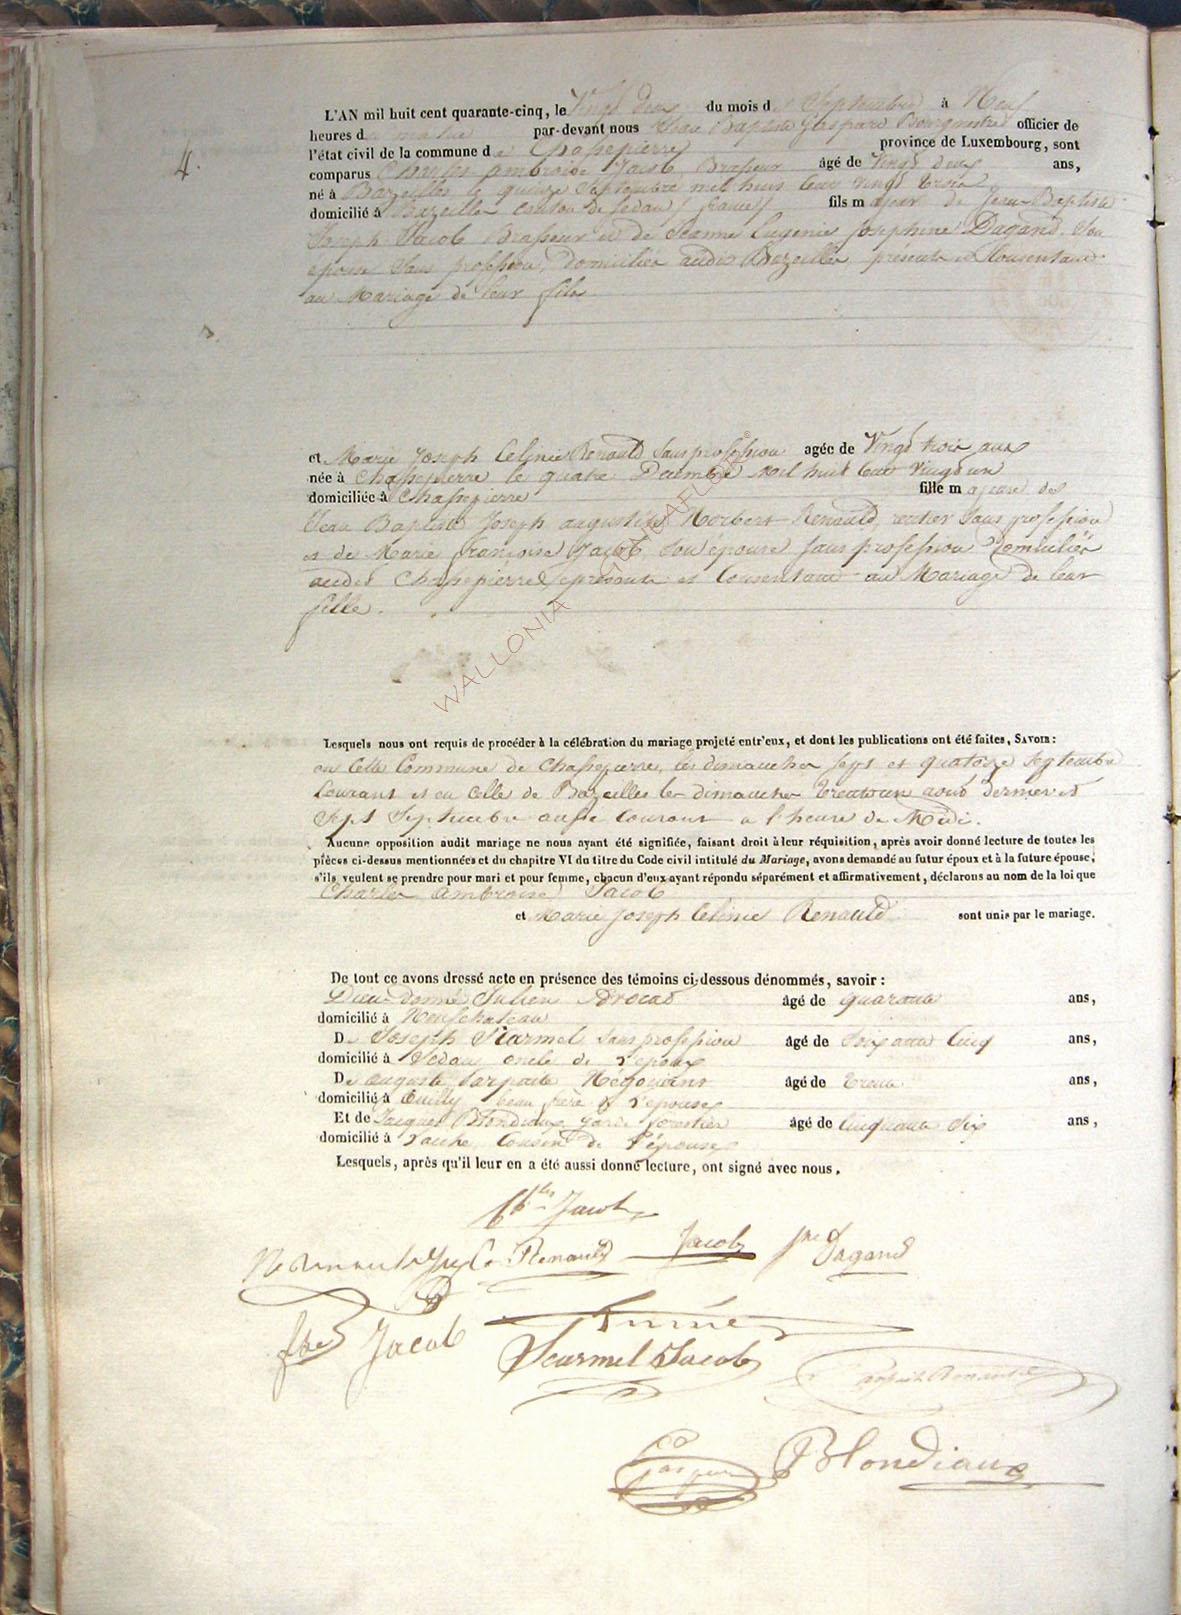 4.
L'AN mil huit cent quarante-cinq, le Vingt deux du mois de Septembre à Neuf
heures du matin par-devant nous Jean Baptiste Gaspard officier de
l'état civil de la commune de Chassepierre province de Luxembourg, sont
comparus Charles ambroise Jacob, Brasseur âgé de Vingt deux ans,
né à Bazeilles le quinze Septembre mil huit cent vingt trois
domicilié à Bazeilles canton de Sedan (france) fils majeur de Jean-Baptiste
Joseph Jacob Brasseur et de Jeanne Eugenie Josephine Dagand, Son
épouse Sans profession, domiciliés audit Bazeilles, présents et Consentant
au Mariage de leur fils
et Marie Joseph Celinie Renauld Sans profession agée de Vingt trois ans
née à Chassepierre le quatre Décembre Mil huit cent Vingt un
domiciliée à Chassepierre fille majeure de
Jean Baptiste Joseph augustin Norbert Renauld, rentier Sans profession
et de Marie françoise Jacob, Son épouse Sans profession Domiciliés
audit Chassepierre, présents et Consentant au Mariage de leur
fille.
WALLONIA
Lesquels nous ont requis de procéder à la célébration du mariage projeté entr'eux, et dont les publications ont été faites, SAVOIR:
en Cette Commune de Chassepierre, les dimanches Sept et quatorze Septembre
Courant et en Celle de Bazeilles les dimanches trente un août dernier et
Sept Septembre aussi Courant a l'heure de Midi.
Aucune opposition audit mariage ne nous ayant été signifiée, faisant droit à leur réquisition, après avoir donné lecture de toutes les
pièces ci-dessus mentionnées et du chapitre VI du titre du Code civil intitulé du Mariage, avons demandé au futur époux et à la future épouse,
s'ils veulent se prendre pour mari et pour femme, chacun d'eux ayant répondu séparément et affirmativement, déclarons au nom de la loi que
Charles Ambroise Jacob
et Marie Joseph Celinie Renauld sont unis par le mariage.
De tout ce avons dressé acte en présence des témoins ci-dessous dénommés, savoir :
Dieu-donné Julien Avocat âgé de quarante ans,
domicilié à Neufchateau
De Joseph Scurmel Sans profession âgé de Soixante Cinq ans,
domicilié à Sedan oncle de l'epoux
De auguste Négociant âgé de trente ans,
domicilié à beau frère de l'epouse
Et de Jacques Blondiaux garde forestier âgé de Cinquante Six ans,
domicilié à Cousin de l'épouse
Lesquels, après qu'il leur en a été aussi donné lecture, ont signé avec nous.
Ch.les Jacob
Renauld Renauld Jacob Dagand
Jacob
Scurmel Jacob
Renauld
Gaspar Blondiaux